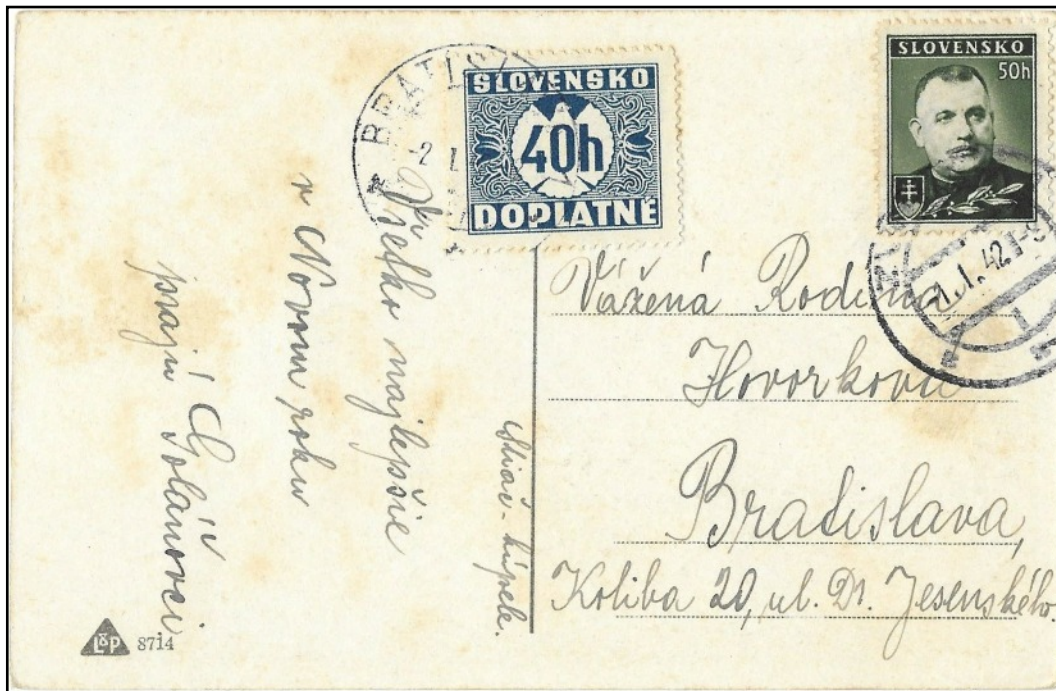 SLOVENSKO
40h
DOPLATNÉ
SLOVENSKO
50h
BRATISL
2 I
1.I.42
Všetko najlepšie
v Novom roku
prajú
Sliač-kúpele.
Vážená Rodina
Hovorkova
Bratislava,
Koliba 20, ul. Dr. Jesenského.
LÖP 8714